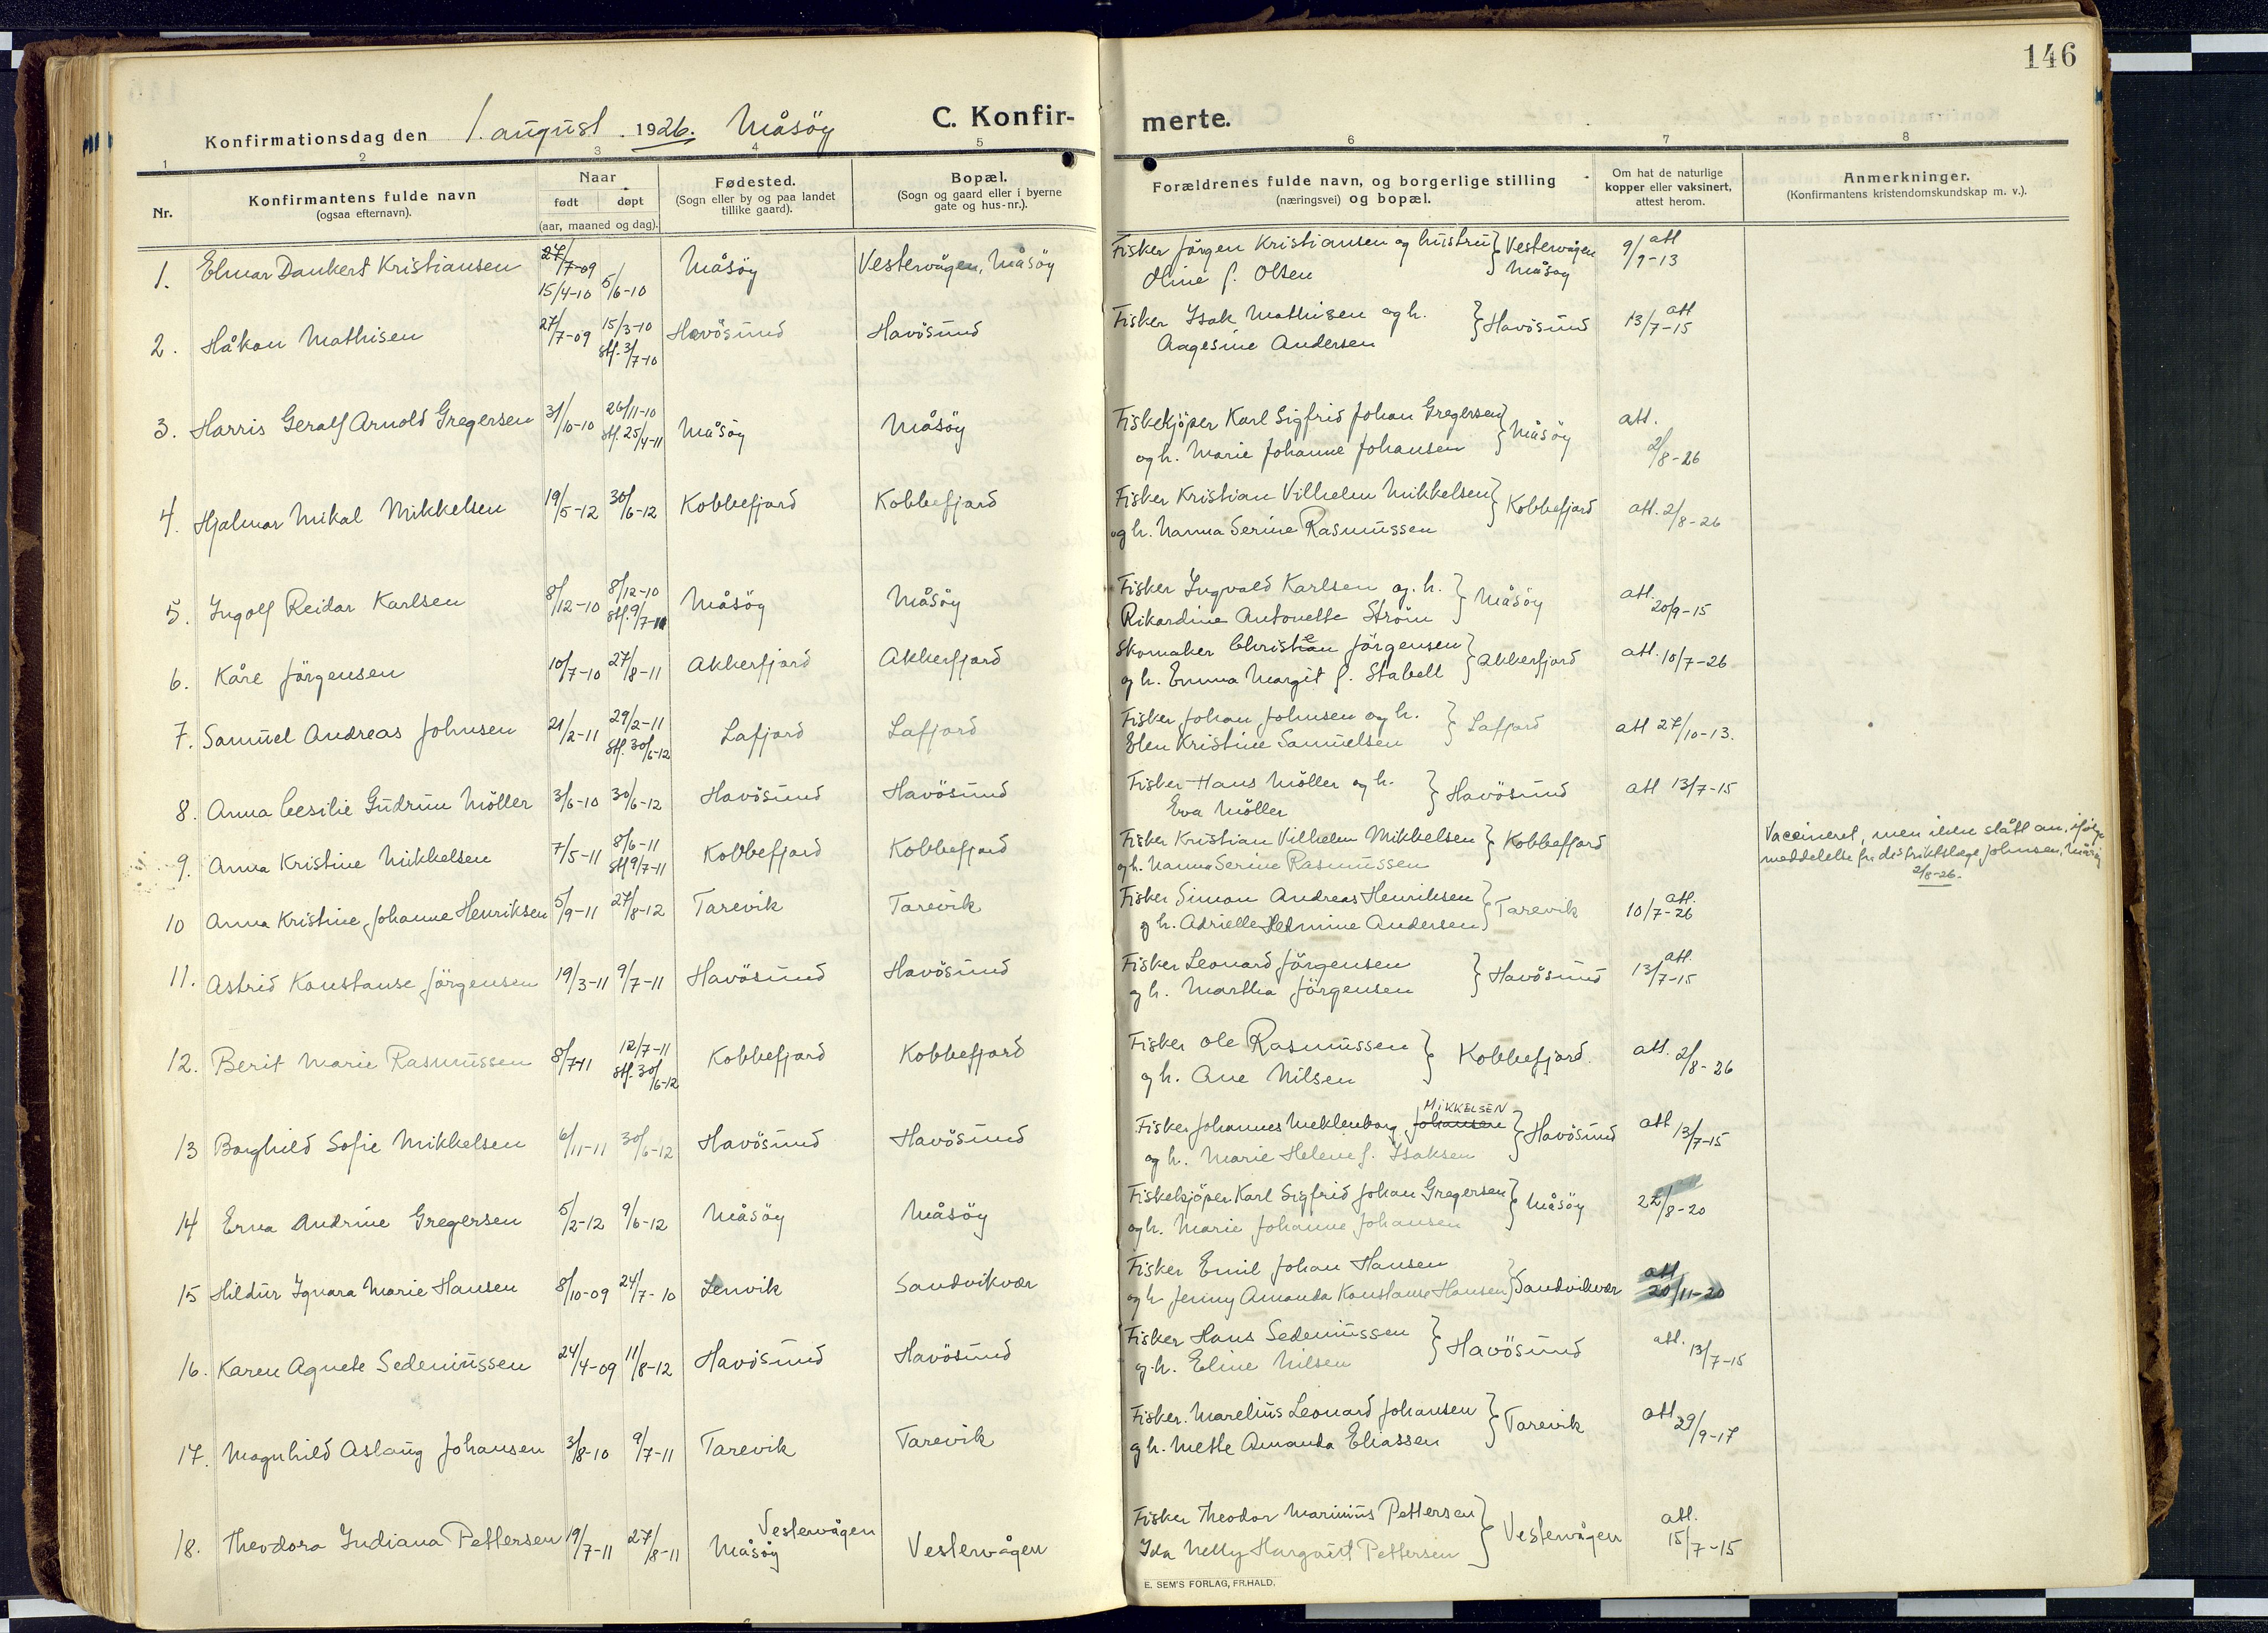 146
Konfirmationsdag den 1. august 1926. Måsöy C. Konfir-
merte.
1 2 3 4 5 6 7 8
Nr.
Konfirmantens fulde navn
(ogsaa efternavn).
Naar
født døpt
(aar, maaned og dag).
Fødested.
(Sogn eller by og paa landet
tillike gaard).
Bopæl.
(Sogn og gaard eller i byerne
gate og hus-nr.).
Forældrenes fulde navn, og borgerlige stilling
(næringsvei) og bopæl.
Om hat de naturlige
kopper eller vaksinert,
attest herom.
Anmerkninger.
(Konfirmantens kristendomskundskap m. v.).
1. Elmar Dankert Kristiansen 27/7-09 15/4-10 5/6-10 Måsöy Vestervågen, Måsöy Fisker Jörgen Kristiansen og hustru } Vestervågen 9/9-13 att
Oline f. Olsen Måsöy
2. Håkon Mathisen 27/7-09 15/3-10 stf. 3/7-10 Havösund Havösund Fisker Isak Mathisen og h. } Havösund 13/7-15 att
Aagesine Andersen
3. Harris Geralf Arnold Gregersen 31/10-10 26/11-10 stf. 25/4-11 Måsöy Måsöy Fiskekjöper Karl Sigfrid Johan Gregersen } Måsöy att.
og h. Marie Johanne Johansen 2/8-26
4. Hjalmar Mikal Mikkelsen 19/5-12 30/6-12 Kobbefjord Kobbefjord Fisker Kristian Vilhelm Mikkelsen } Kobbefjord att. 2/8-26
og h. Nanna Serine Rasmussen
5. Ingolf Reidar Karlsen 8/12-10 8/12-10 stf. 9/7-11 Måsöy Måsöy Fisker Ingvald Karlsen og. h. } Måsöy att. 20/9-15
Rikardine Antonette Ström
6. Kåre Jörgensen 10/7-10 27/8-11 Akkerfjord Akkerfjord Skomaker Christian Jörgensen } Akkerfjord att. 10/7-26
og h. Emma Margit f. Stabell
7. Samuel Andreas Johnsen 21/2-11 29/2-11 stf. 30/6-12 Lafjord Lafjord Fisker Johan Johnsen og h. } Lafjord att 27/10-13.
Elen Kristine Samuelsen
8. Anna Cesilie Gudrun Möller 3/6-10 30/6-12 Havösund Havösund Fisker Hans Möller og h. } Havösund att 13/7-15
Eva Möller
9. Anna Kristine Mikkelsen 7/5-11 8/6-11 stf 9/7-11 Kobbefjord Kobbefjord Fisker Kristian Vilhelm Mikkelsen } Kobbefjord Vaccineret, men ikke slått an, ifölge
og h. Nanna Serine Rasmussen meddelelse fra distriktslæge Johnsen, Måsöy
2/8-26.
10 Anna Kristine Johanne Henriksen 5/9-11 27/8-12 Tarevik Tarevik Fisker Simon Andreas Henriksen } Tarevik 10/7-26 att.
og h. Adrielle Hermine Andersen
11. Astrid Konstanse Jörgensen 19/3-11 9/7-11 Havösund Havösund Fisker Leonard Jörgensen } Havösund 13/7-15 att.
og h. Martha Jörgensen
12. Berit Marie Rasmussen 8/7-11 12/7-11 stf. 30/6-12 Kobbefjord Kobbefjord Fisker Ole Rasmussen } Kobbefjord. att. 2/8-26
og h. Ane Nilsen
13 Borghild Sofie Mikkelsen 6/11-11 30/6-12 Havösund Havösund Fisker Johannes Meklenborg Johansen MIKKELSEN } Havösund att 13/7-15
og h. Marie Helene f. Isaksen
14 Erna Andrine Gregersen 5/2-12 9/6-12 Måsöy Måsöy Fiskekjöper Karl Sigfrid Johan Gregersen } Måsöy 22/8-20
og h. Marie Johanne Johansen
15 Hildur Ignara Marie Hansen 8/10-09 24/7-10 Lenvik Sandvikvær Fisker Emil Johan Hansen
og h Jenny Amanda Konstanse Hansen } Sandvikvær att 20/11-20
16. Karen Agnete Sedeniussen 24/4-09 11/8-12 Havösund Havösund Fisker Hans Sedeniussen } Havösund att. 13/7-15
og h. Eline Nilsen
17. Magnhild Aslaug Johansen 3/8-10 9/7-11 Tarevik Tarevik Fisker. Marelius Leonard Johansen } Tarevik att 29/9-17
og h. Mette Amanda Eliassen
18. Theodora Indiana Pettersen 19/7-11 27/8-11 Vestervågen Måsöy Vestervågen Fisker Theodor Marinius Pettersen } Vestervågen att. 15/7-15
Ida Nelly Pettersen
E. SEM'S FORLAG, FR.HALD.